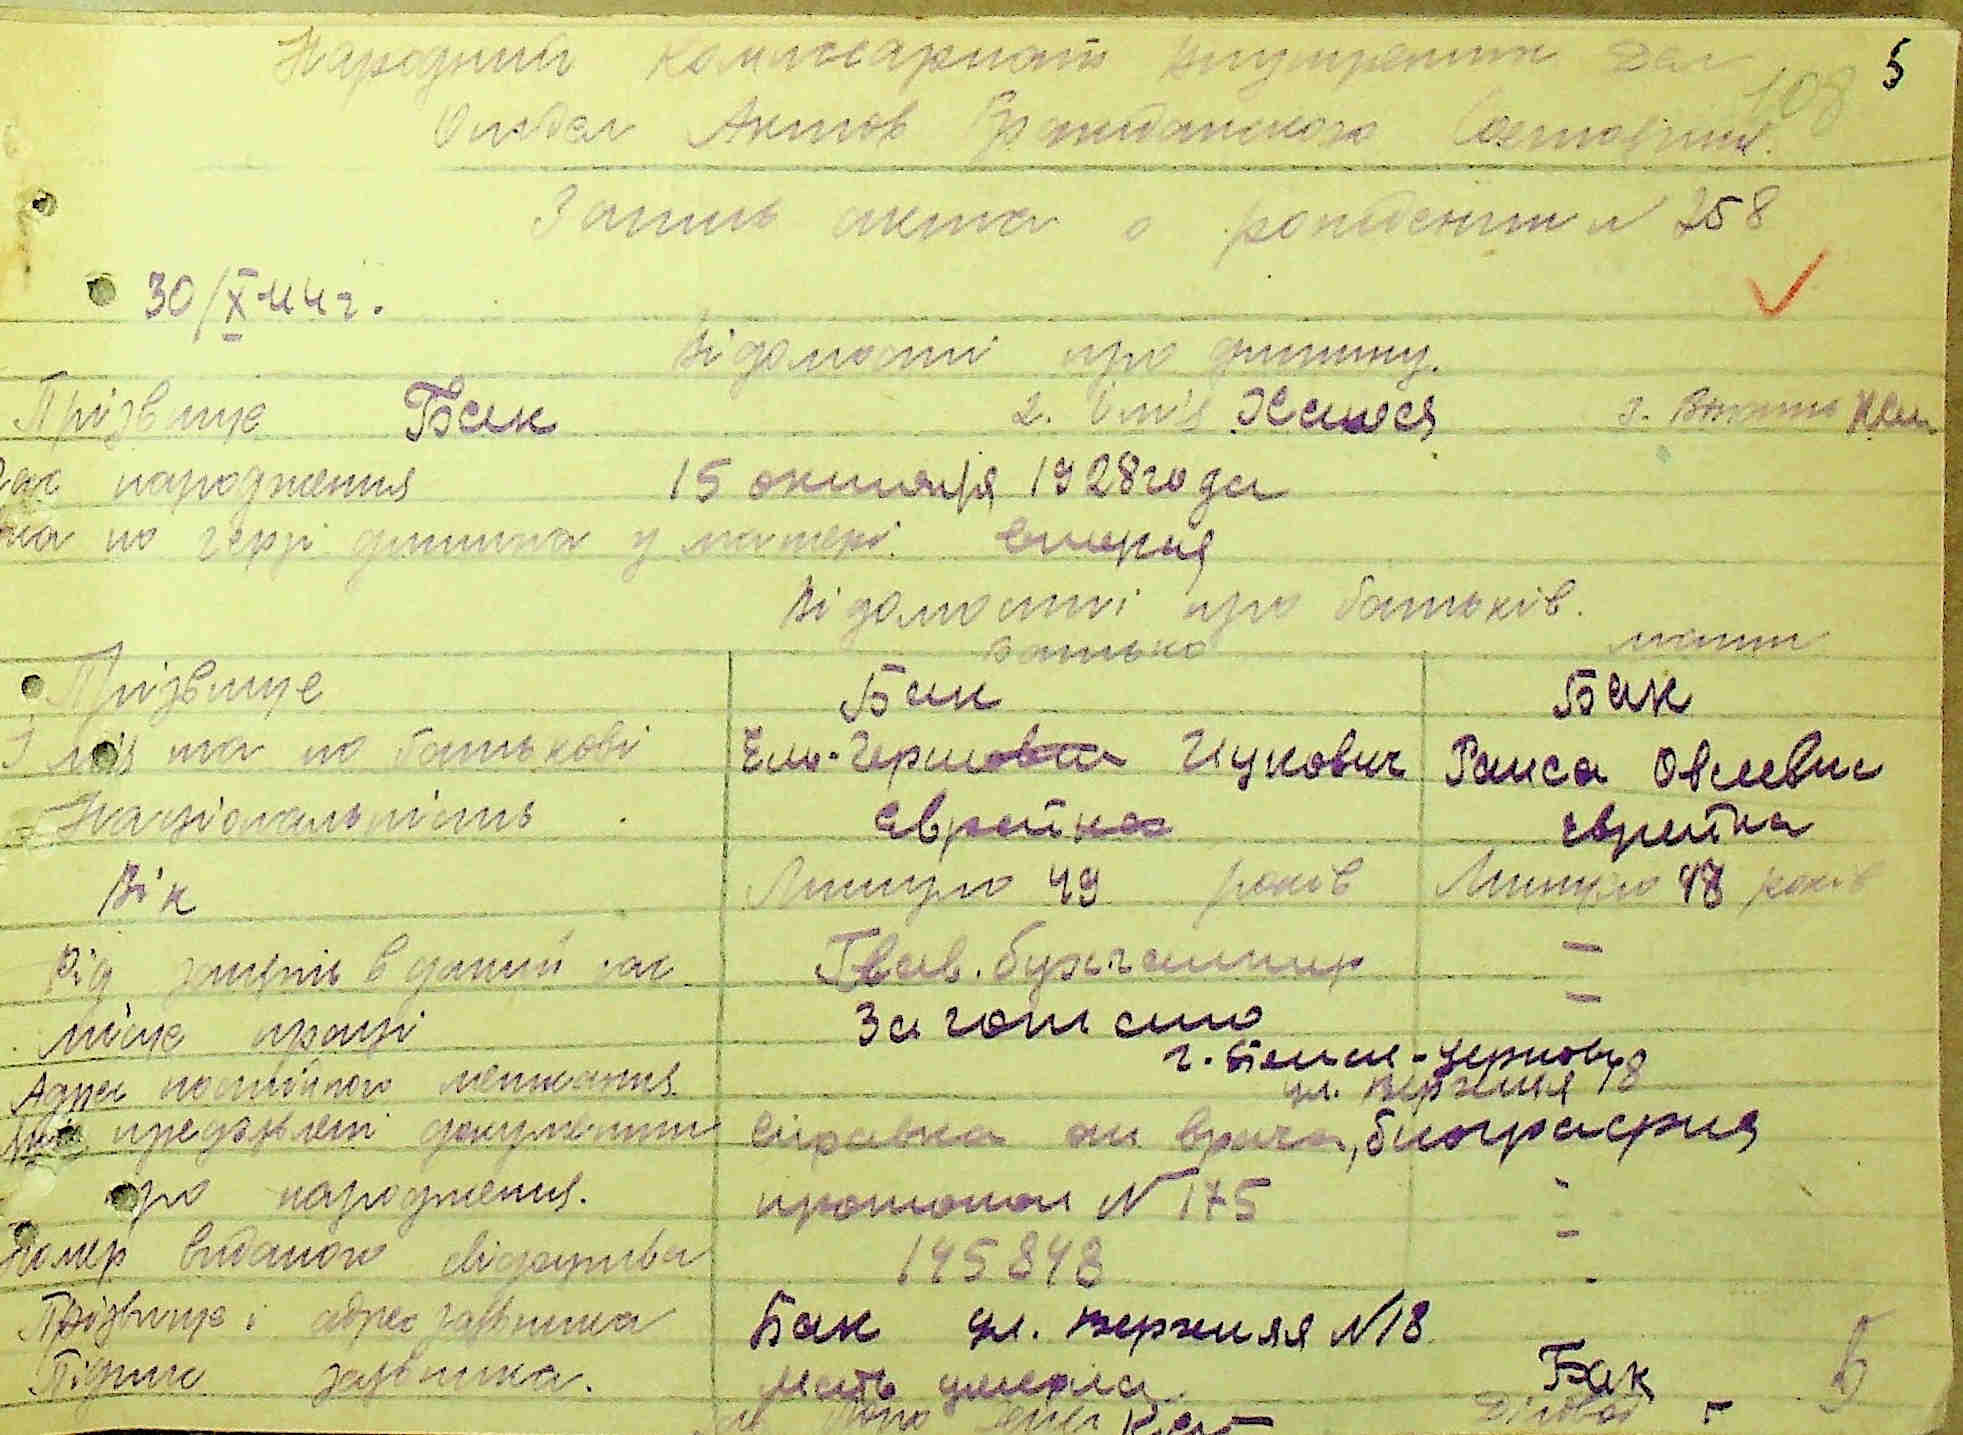 5
Народний Коммисариат Внутренних Дел
108
Отдел Актов Гражданского Состояния.
Запись акта о рождении N 258
30/X-44 г.
Відомості про дитину.
Прізвище Бак 2. Ім'я Хана 3.
Час народження 15 октября 1928 года
яка по черзі дитина у матері вторая
Відомості про батьків.
батько мати
Прізвище Бак Бак
Ім'я та по батькові Ицкович Раиса Овсеевна
Національність еврейка еврейка
Вік Минуло 49 років Минуло 48 років
Рід занять в даний час Глав. бухгалтер –
Місце праці –
г. Черновцы
Адрес постійного мешкання ул. Верхняя 18
Які предявлені документи справка от врача, биография
про народження. протокол N 175 -
Номер виданого свідоцтва 145848 -
Прізвище і адрес заявника Бак ул. Верхняя N 18
Підпис заявника. Мать умерла. Бак